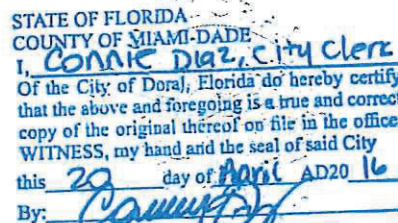 STATE OF FLORIDA
COUNTY OF MIAMI-DADE
I, Connie Diaz, City Clerk
Of the City of Doral, Florida do hereby certify
that the above and foregoing is a true and correct
copy of the original thereof on file in the office
WITNESS, my hand and the seal of said City
this 20 day of April AD20 16
By: